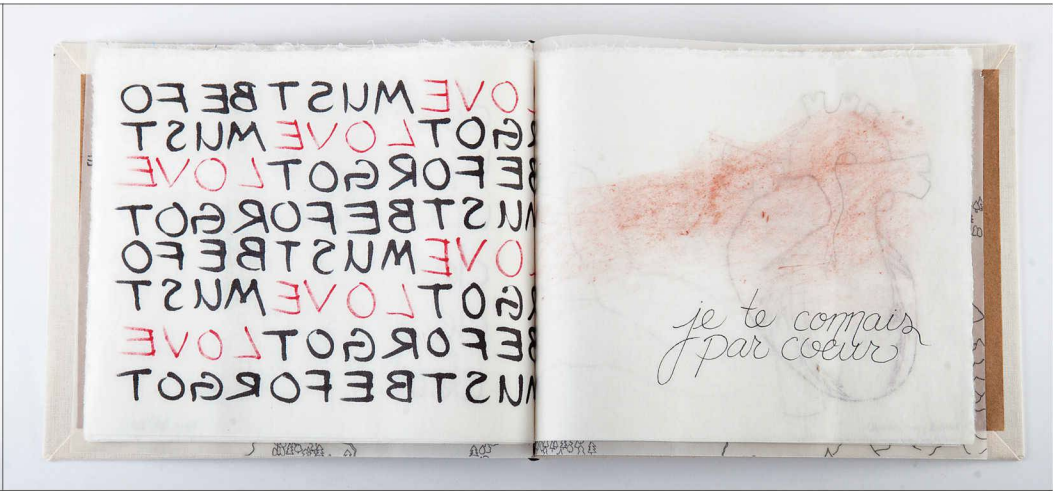 LOVE MUST BE FO
RGOT LOVE MUST
BE FORGOT LOVE
MUST BE FORGOT
LOVE MUST BE FO
RGOT LOVE MUST
BE FORGOT LOVE
MUST BE FORGOT
je te connais
par coeur